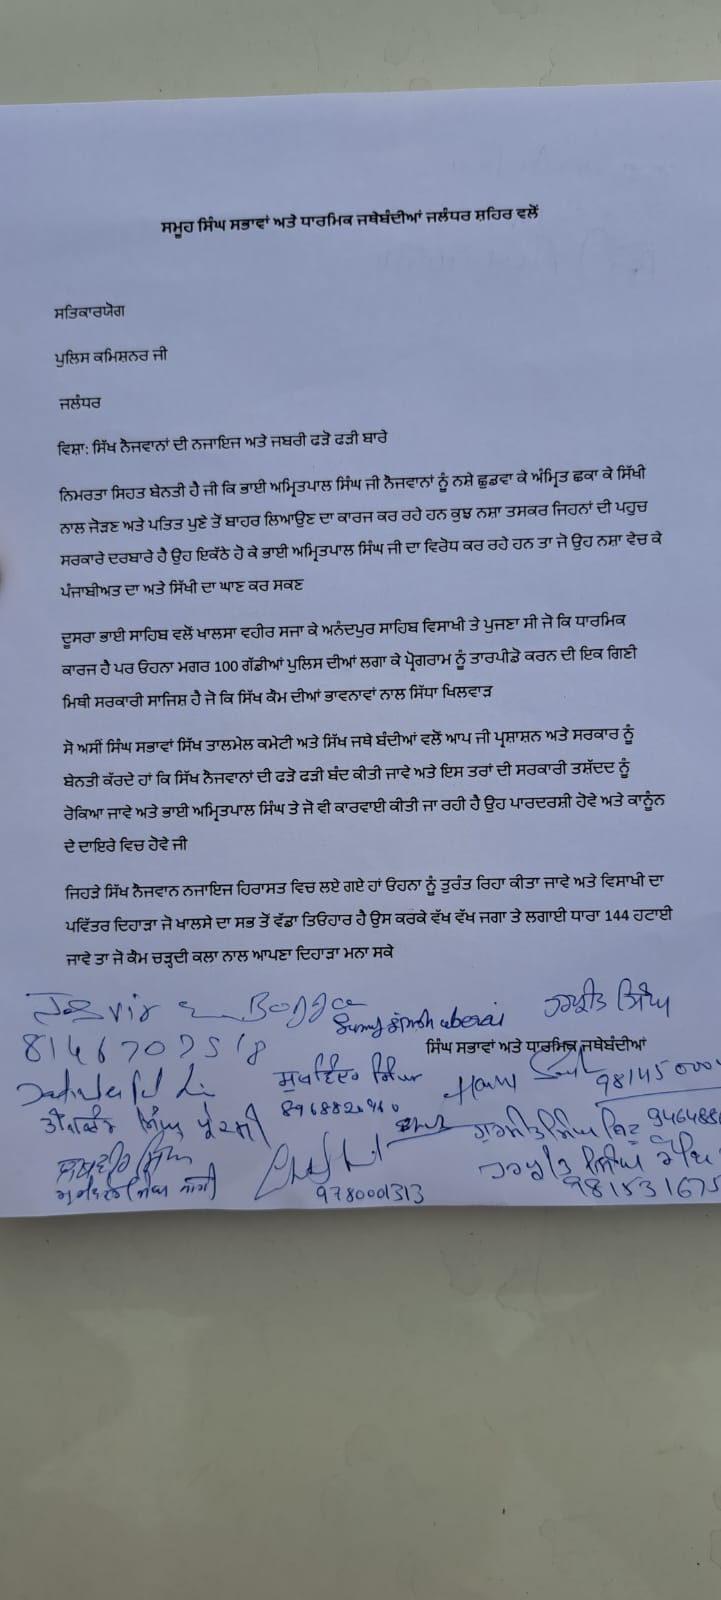 ਸਮੂਹ ਸਿੰਘ ਸਭਾਵਾਂ ਅਤੇ ਧਾਰਮਿਕ ਜਥੇਬੰਦੀਆਂ ਜਲੰਧਰ ਸ਼ਹਿਰ ਵਲੋਂ
ਸਤਿਕਾਰਯੋਗ
ਪੁਲਿਸ ਕਮਿਸ਼ਨਰ ਜੀ
ਜਲੰਧਰ
ਵਿਸ਼ਾ: ਸਿੱਖ ਨੌਜਵਾਨਾਂ ਦੀ ਨਜਾਇਜ ਅਤੇ ਜਬਰੀ ਫੜੋ ਫੜੀ ਬਾਰੇ
ਨਿਮਰਤਾ ਸਿਹਤ ਬੇਨਤੀ ਹੈ ਜੀ ਕਿ ਭਾਈ ਅਮ੍ਰਿਤਪਾਲ ਸਿੰਘ ਜੀ ਨੌਜਵਾਨਾਂ ਨੂੰ ਨਸ਼ੇ ਛੁਡਵਾ ਕੇ ਅੰਮ੍ਰਿਤ ਛਕਾ ਕੇ ਸਿੱਖੀ
ਨਾਲ ਜੋੜਣ ਅਤੇ ਪਤਿਤ ਪੁਣੇ ਤੋਂ ਬਾਹਰ ਲਿਆਉਣ ਦਾ ਕਾਰਜ ਕਰ ਰਹੇ ਹਨ ਕੁਝ ਨਸ਼ਾ ਤਸਕਰ ਜਿਹਨਾਂ ਦੀ ਪਹੁਚ
ਸਰਕਾਰੇ ਦਰਬਾਰੇ ਹੈ ਉਹ ਇਕੱਠੇ ਹੋ ਕੇ ਭਾਈ ਅਮ੍ਰਿਤਪਾਲ ਸਿੰਘ ਜੀ ਦਾ ਵਿਰੋਧ ਕਰ ਰਹੇ ਹਨ ਤਾ ਜੋ ਉਹ ਨਸ਼ਾ ਵੇਚ ਕੇ
ਪੰਜਾਬੀਅਤ ਦਾ ਅਤੇ ਸਿੱਖੀ ਦਾ ਘਾਣ ਕਰ ਸਕਣ
ਦੂਸਰਾ ਭਾਈ ਸਾਹਿਬ ਵਲੋਂ ਖਾਲਸਾ ਵਹੀਰ ਸਜਾ ਕੇ ਅਨੰਦਪੁਰ ਸਾਹਿਬ ਵਿਸਾਖੀ ਤੇ ਪੁਜਣਾ ਸੀ ਜੋ ਕਿ ਧਾਰਮਿਕ
ਕਾਰਜ ਹੈ ਪਰ ਓਹਨਾ ਮਗਰ 100 ਗੱਡੀਆਂ ਪੁਲਿਸ ਦੀਆਂ ਲਗਾ ਕੇ ਪ੍ਰੋਗਰਾਮ ਨੂੰ ਤਾਰਪੀਡੋ ਕਰਨ ਦੀ ਇਕ ਗਿਣੀ
ਮਿਥੀ ਸਰਕਾਰੀ ਸਾਜਿਸ਼ ਹੈ ਜੋ ਕਿ ਸਿੱਖ ਕੌਮ ਦੀਆਂ ਭਾਵਨਾਵਾਂ ਨਾਲ ਸਿੱਧਾ ਖਿਲਵਾੜ
ਸੋ ਅਸੀਂ ਸਿੰਘ ਸਭਾਵਾਂ ਸਿੱਖ ਤਾਲਮੇਲ ਕਮੇਟੀ ਅਤੇ ਸਿੱਖ ਜਥੇ ਬੰਦੀਆਂ ਵਲੋਂ ਆਪ ਜੀ ਪ੍ਰਸ਼ਾਸ਼ਨ ਅਤੇ ਸਰਕਾਰ ਨੂੰ
ਬੇਨਤੀ ਕੱਰਦੇ ਹਾਂ ਕਿ ਸਿੱਖ ਨੌਜਵਾਨਾਂ ਦੀ ਫੜੋ ਫੜੀ ਬੰਦ ਕੀਤੀ ਜਾਵੇ ਅਤੇ ਇਸ ਤਰਾਂ ਦੀ ਸਰਕਾਰੀ ਤਸ਼ੱਦਦ ਨੂੰ
ਰੋਕਿਆ ਜਾਵੇ ਅਤੇ ਭਾਈ ਅਮ੍ਰਿਤਪਾਲ ਸਿੰਘ ਤੇ ਜੋ ਵੀ ਕਾਰਵਾਈ ਕੀਤੀ ਜਾ ਰਹੀ ਹੈ ਉਹ ਪਾਰਦਰਸ਼ੀ ਹੋਵੇ ਅਤੇ ਕਾਨੂੰਨ
ਦੇ ਦਾਇਰੇ ਵਿਚ ਹੋਵੇ ਜੀ
ਜਿਹੜੇ ਸਿੱਖ ਨੌਜਵਾਨ ਨਜਾਇਜ ਹਿਰਾਸਤ ਵਿਚ ਲਏ ਗਏ ਹਾਂ ਓਹਨਾ ਨੂੰ ਤੁਰੰਤ ਰਿਹਾ ਕੀਤਾ ਜਾਵੇ ਅਤੇ ਵਿਸਾਖੀ ਦਾ
ਪਵਿੱਤਰ ਦਿਹਾੜਾ ਜੋ ਖਾਲਸੇ ਦਾ ਸਭ ਤੋਂ ਵੱਡਾ ਤਿਓਹਾਰ ਹੈ ਉਸ ਕਰਕੇ ਵੱਖ ਵੱਖ ਜਗਾ ਤੇ ਲਗਾਈ ਧਾਰਾ 144 ਹਟਾਈ
ਜਾਵੇ ਤਾ ਜੋ ਕੌਮ ਚੜ੍ਹਦੀ ਕਲਾ ਨਾਲ ਆਪਣਾ ਦਿਹਾੜਾ ਮਨਾ ਸਕੇ
Bagga
ਹਰਪ੍ਰੀਤ ਸਿੰਘ
ਸਿੰਘ ਸਭਾਵਾਂ ਅਤੇ ਧਾਰਮਿਕ ਜਥੇਬੰਦੀਆਂ
ਸੁਖਵਿੰਦਰ ਸਿੰਘ
9780001313